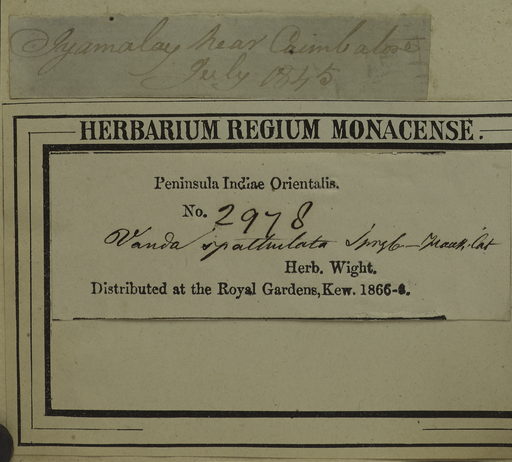 Iyamalay near Coimbatore
July 1845
HERBARIUM REGIUM MONACENSE.
Peninsula Indiae Orientalis.
No. 2978
Vanda spathulata Sprgl
Herb. Wight.
Distributed at the Royal Gardens, Kew. 1866-8.